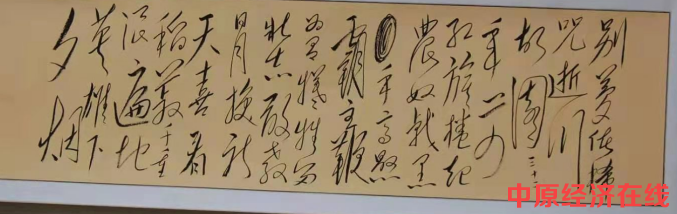 别梦依稀
咒逝川
故園三十二
年前
红旗捲起
農奴戟黑
手高悬
霸主鞭
为有犠牲多
壮志敢教
日月换新
天喜看
稻菽千重
浪遍地
英雄下
夕烟
中原经济在线